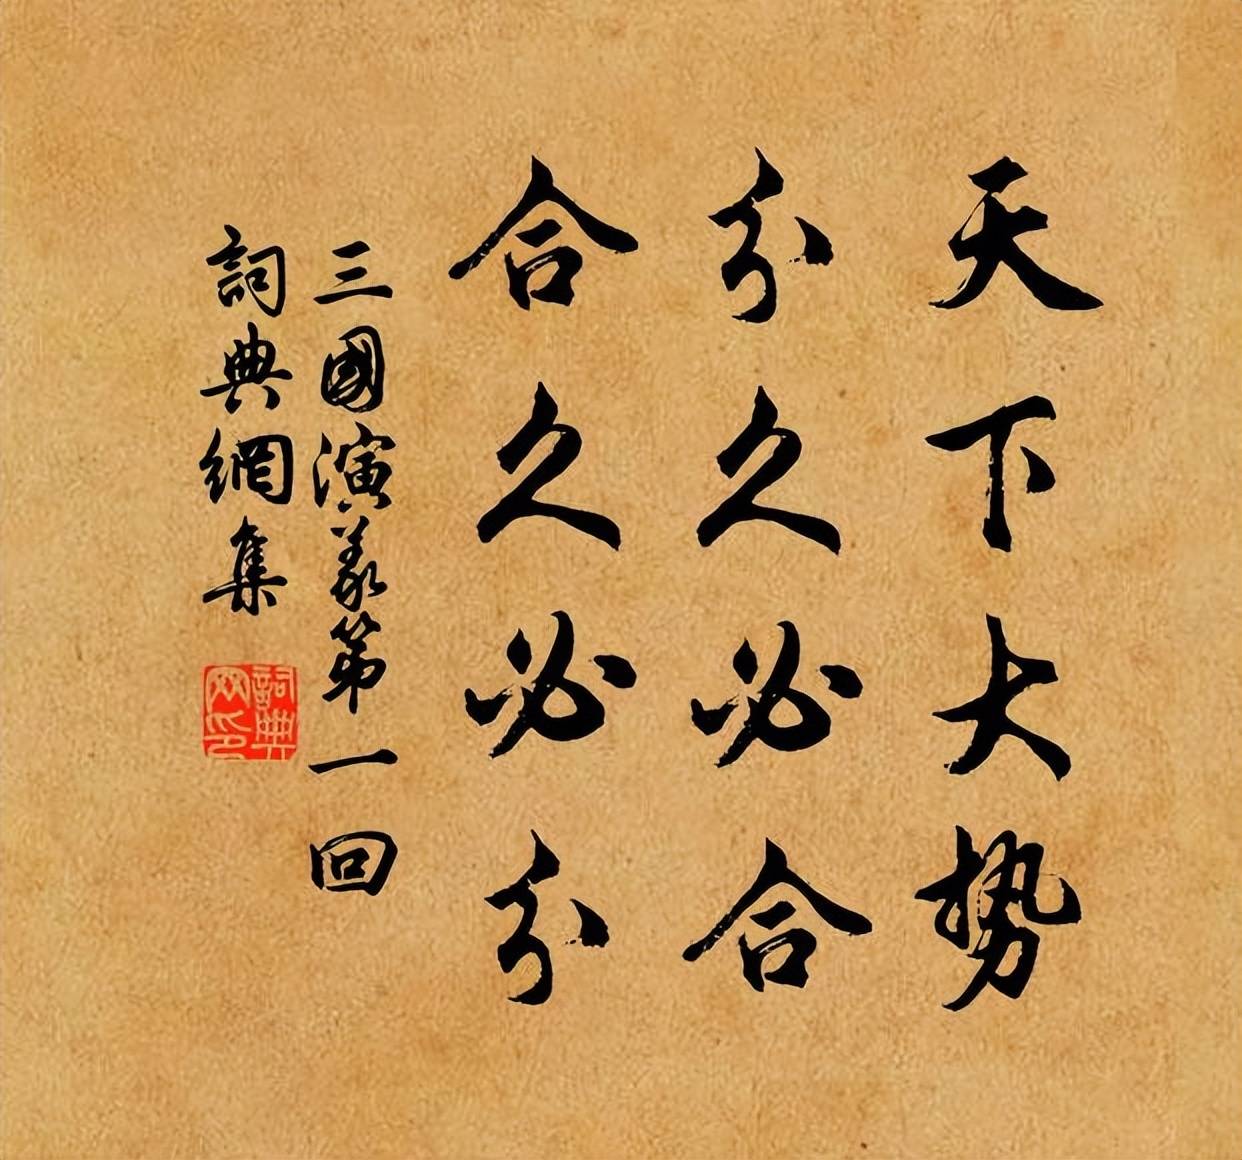 天下大势
分久必合
合久必分
三國演義第一回
詞典網集
詞典
网印